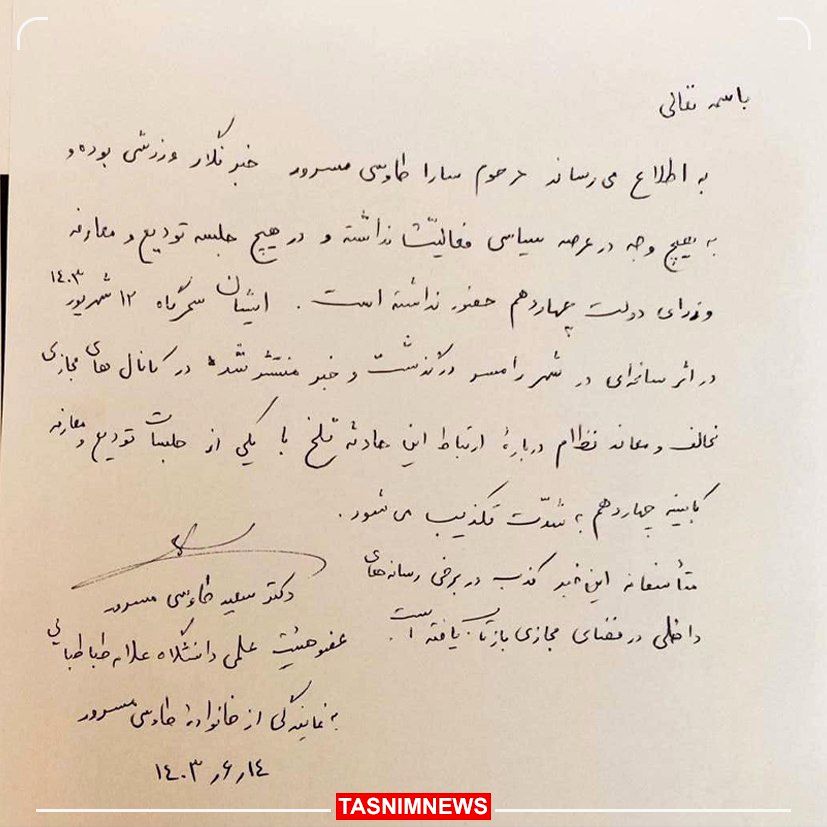 باسمه تعالی
به اطلاع می‌رساند مرحوم سارا طاوسی مسرور خبرنگار ورزشی بوده و
به هیچ وجه در عرصه سیاسی فعالیت نداشته و در هیچ جلسه تودیع و معارفه
وزرای دولت چهاردهم حضور نداشته است. ایشان سحرگاه ۱۲ شهریور ۱۴۰۳
در اثر سانحه‌ای در شهر رامسر درگذشت و خبر منتشر شده در کانال های مجازی
مخالف و معاند نظام دربارهٔ ارتباط این حادثه تلخ با یکی از جلسات تودیع و معارفه
کابینه چهاردهم به شدّت تکذیب می‌شود.
متأسفانه این خبر کذب در برخی رسانه‌های
داخلی در فضای مجازی بازتاب یافته است.
دکتر سعید طاوسی مسرور
عضو هیئت علمی دانشگاه علامه طباطبائی
به نمایندگی از خانوادهٔ طاوسی مسرور
۱۴۰۳٫۶٫۱۴
TASNIMNEWS